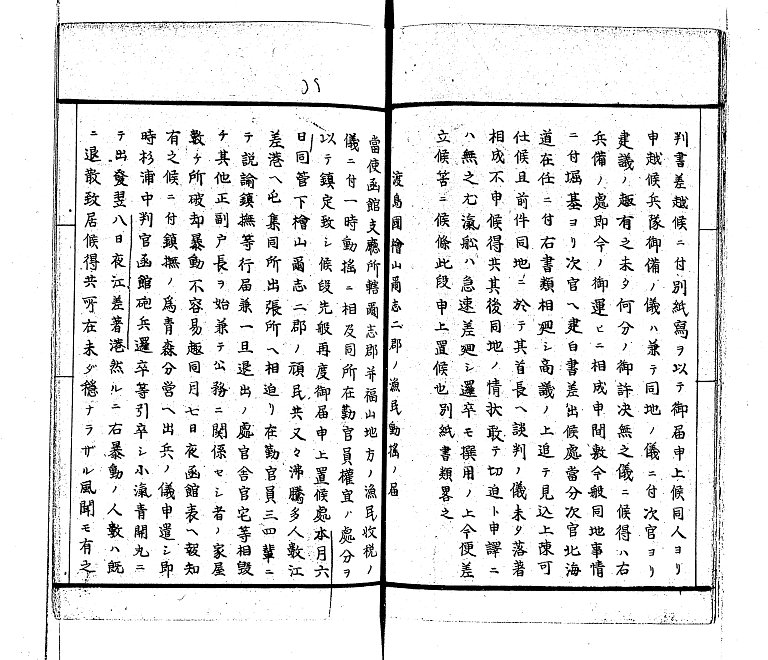 判書差越候ニ付別紙寫ヲ以テ御届申上候同人ヨリ
申越候兵隊御備ノ儀ハ兼テ同地ノ儀ニ付次官ヨリ
建議ノ趣有之未タ何分ノ御許决無之儀ニ候得ハ右
兵備ノ處即今ノ御運ヒニ相成申間數今般同地事情
ニ付堀基ヨリ次官ヘ建白書差出候處當分次官北海
道在任ニ付右書類相廻シ高議ノ上追テ見込上陳可
仕候且前件同地ニ於テ其首長ヘ談判ノ儀未タ落着
相成不申候得共其後同地ノ情状敢テ切迫ト申譯ニ
ハ無之尤滊舩ハ急速差廻シ邏卒モ撰用ノ上今便差
立候筈ニ候條此段申上置候也別紙書類畧之
渡島國檜山爾志二郡ノ漁民動揺ノ届
當使函館支廳所轄爾志郡并福山地方ノ漁民收税ノ
儀ニ付一時動揺ニ相及同所在勤官員權宜ノ處分ヲ
以テ鎮定致シ候段先般再度御届申上置候處本月六
日同管下檜山爾志二郡ノ頑民共又々沸騰多人數江
差港ヘ屯集同所出張所ヘ相迫リ在勤官員三四輩ニ
テ説諭鎮撫等行届兼一旦退出ノ處官舎官宅等相毀
チ其他正副戸長ヲ始兼テ公務ニ關係セシ者ノ家屋
數ケ所破却暴動不容易趣同月七日夜函館表ヘ報知
有之候ニ付鎮撫ノ爲青森分營ヘ出兵ノ儀申遣シ即
時杉浦中判官函館砲兵邏卒等引卒シ小滊青開丸ニ
テ出發翌八日夜江差著港然ルニ右暴動ノ人數ハ既
ニ退散致居候得共所在未ダ穏ナラザル風聞モ有之